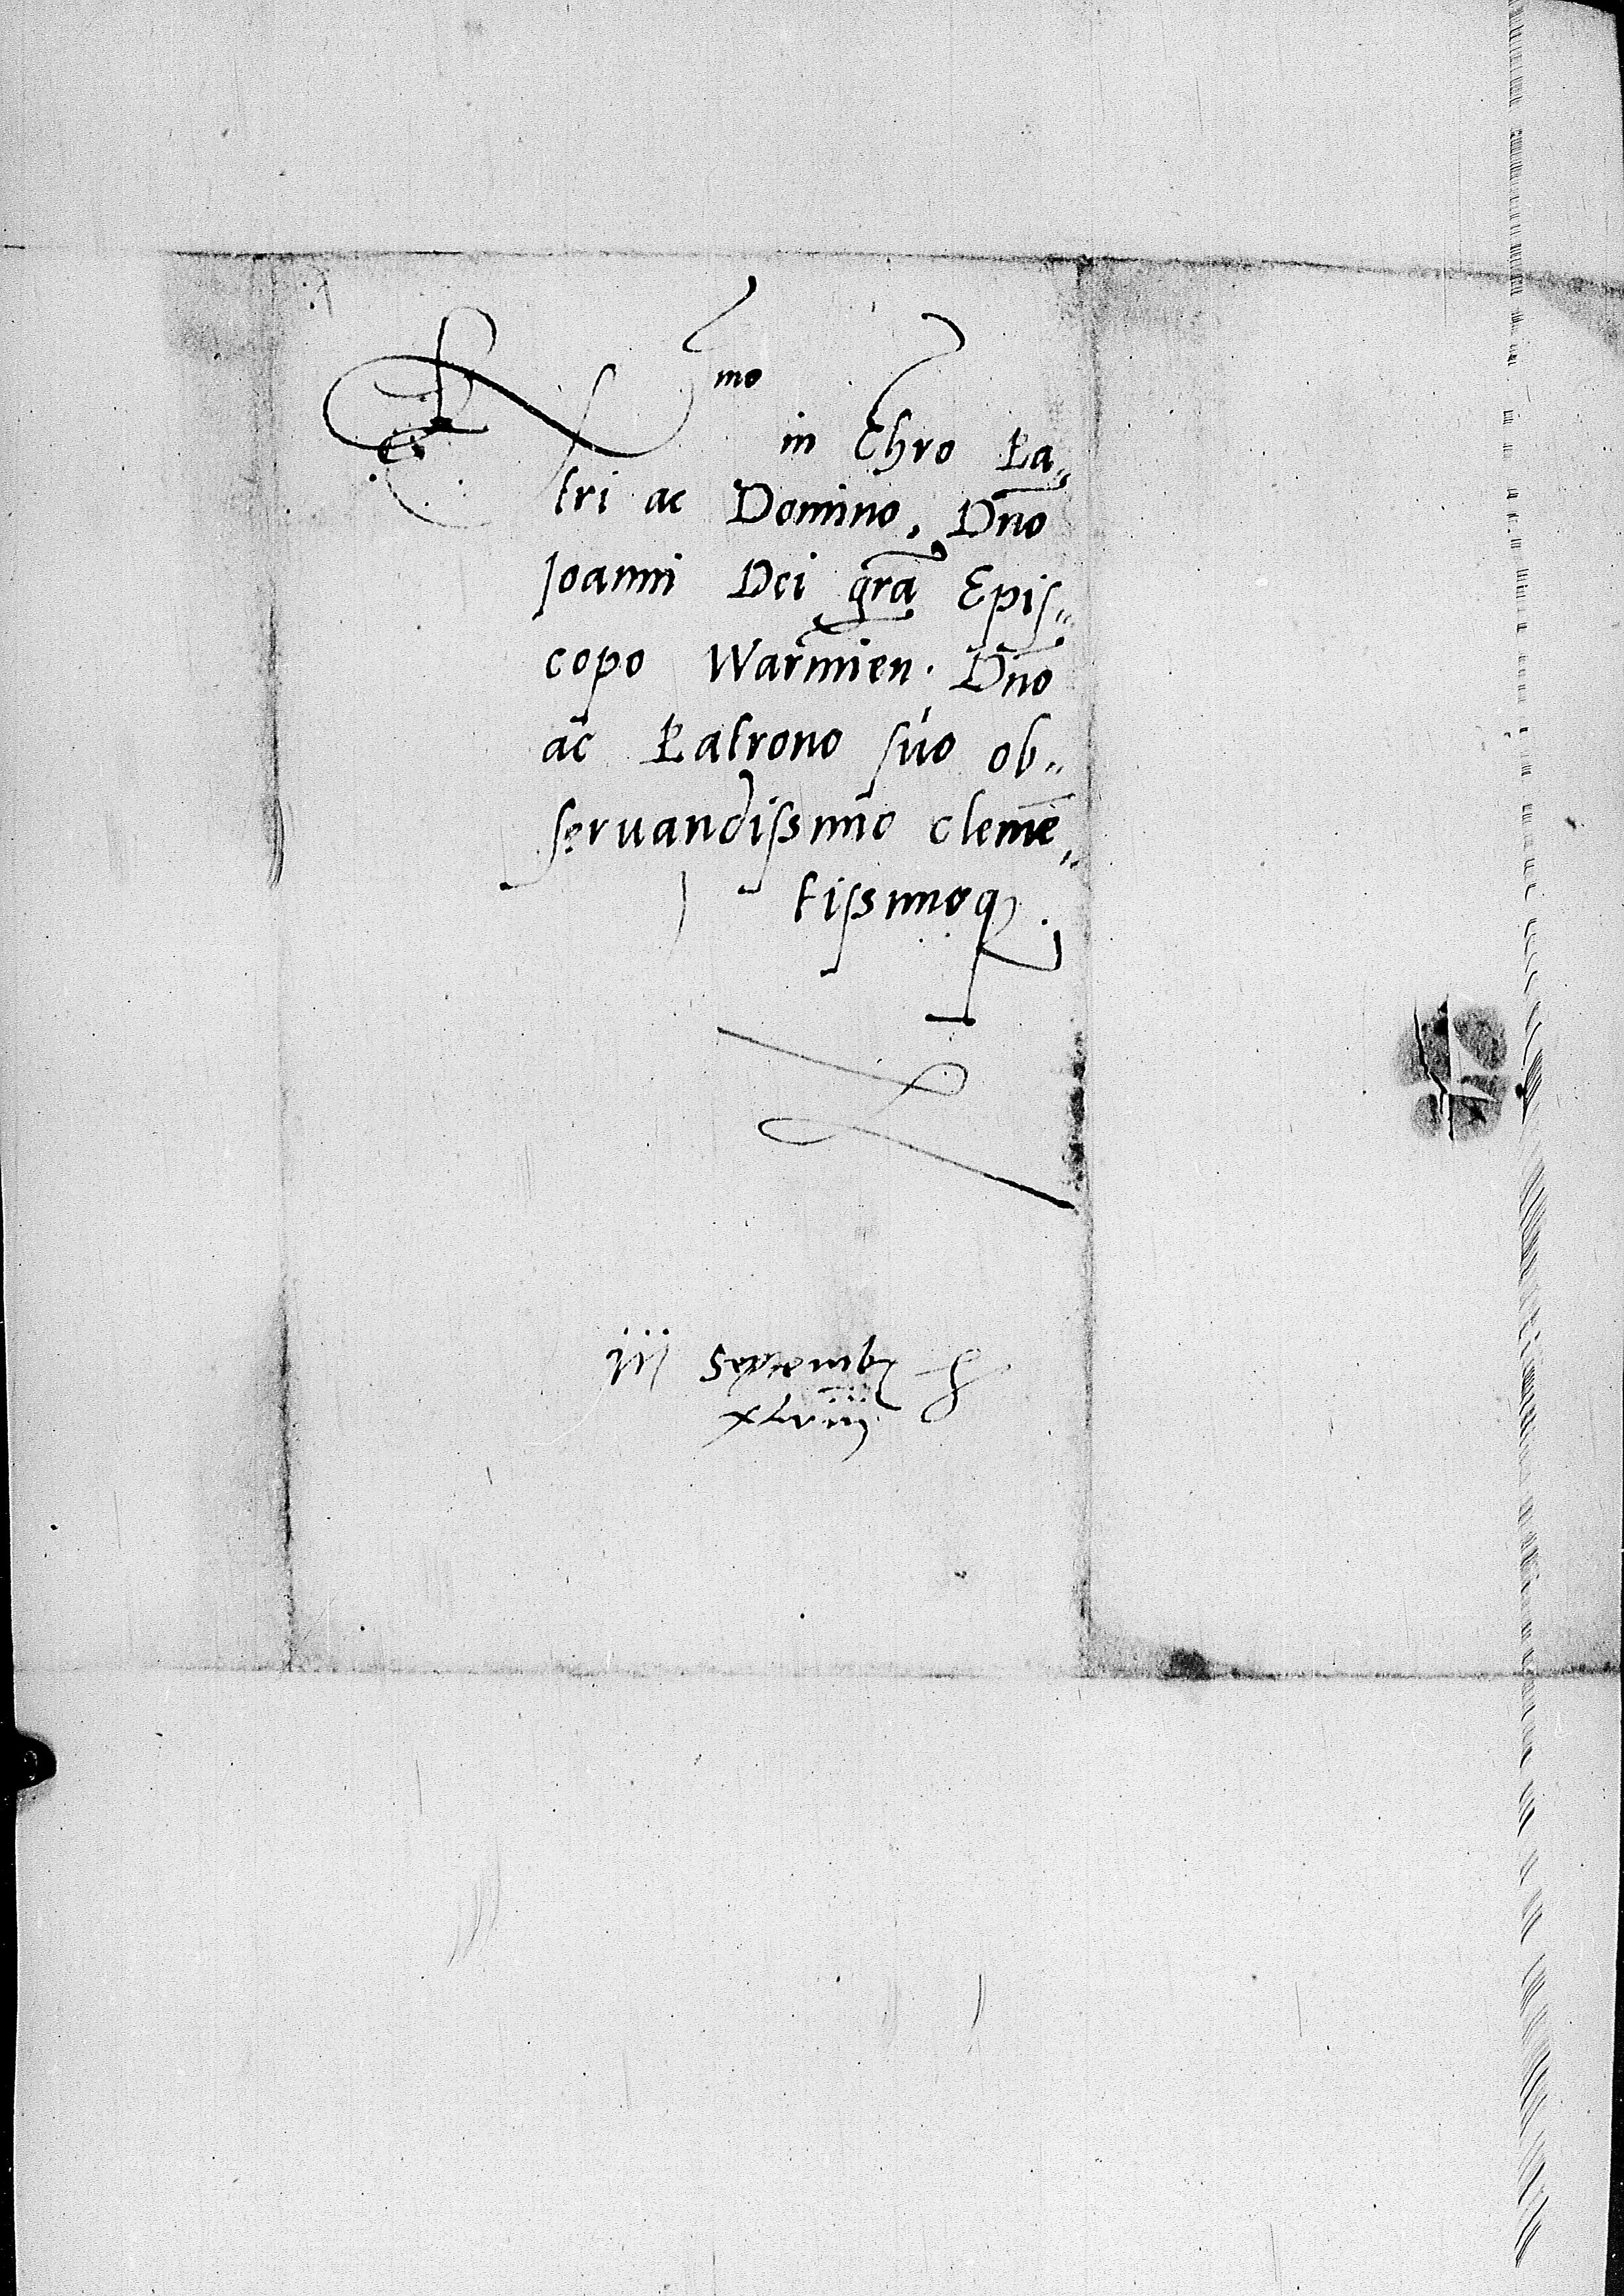 R mo
in Chro Pa„
tri ac Domino, Dño
Joanni Dei grã Epis„
copo Warmien. Dño
ac Patrono suo ob„
seruandissimo clemē„
tissimoq
iij Septembr
xlviij